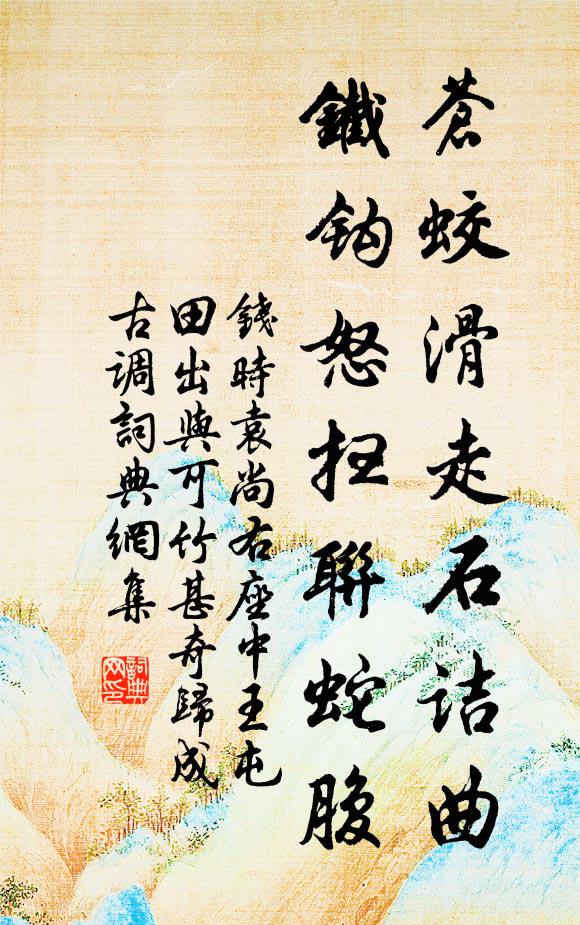 蒼蛟滑走石詰曲
鐵鈎怒扭聯蛇腹
錢時袁尚右座中王屯
田出與可竹甚奇歸成
古調詞典網集
詞典
网印